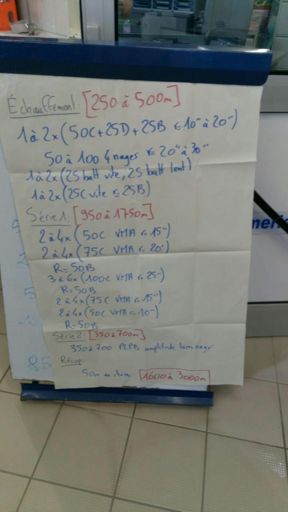 Échauffement: [250 à 500m]
1 à 2x (50C+25D+25B ≤ 10" à 20")
50 à 100 4 nages r= 20" à 30"
1 à 2x (25 batt vite, 25 batt lent)
1 à 2x (25C vite ≤ 25B)
Série 1 [950 à 1750m]
2 à 4x (50C VMA ≤ 15")
2 à 4x (75C VMA ≤ 20")
R= 50B
3 à 6x (100C VMA ≤ 25")
R= 50B
2 à 4x (75C VMA ≤ 15")
2 à 4x (50C VMA ≤ 10")
R= 50B
Série 2 [350 à 700m]
350 à 700 PLPB amplitude bien nagé
Récup
50m [1600 à 3000m]